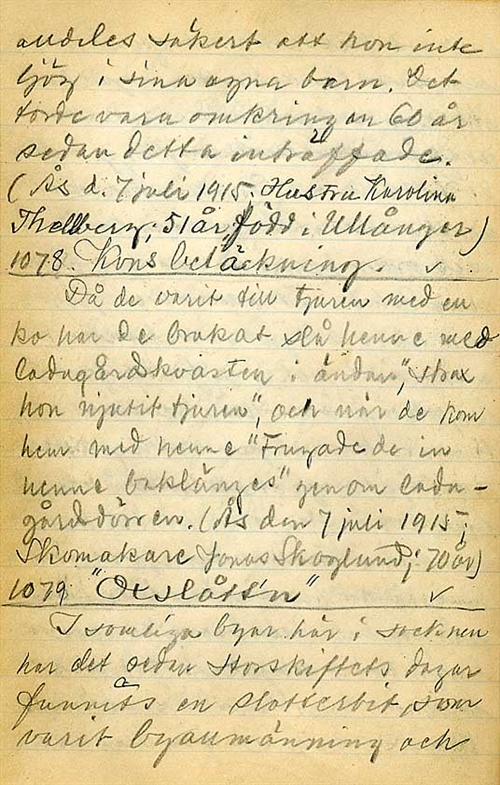 andeles säkert att hon inte
ljög i sina egna barn. Det
torde vara omkring en 60 år
sedan detta inträffade.
(Ås d. 7 juli 1915, Hustru Karolina
Thellberg; 51 år, född i Ullånger)
1078. Kons betäckning. ✓
Då de varit till tjuren med en
ko har de brukat slå henne med
ladugårdskvasten i ändan, "strax
hon njutit tjuren", och när de kom
hem med henne "Frugade de in
henne baklänges" genom ladu-
gårdsdörren. (Ås den 7 juli 1915;
Skomakare Jonas Skoglund; 70 år)
1079 "Oxslått'n" ✓
I somliga byar här i socknen
har det sedan storskiftets dagar
funnits en slotterbit, som
varit byaumänning och